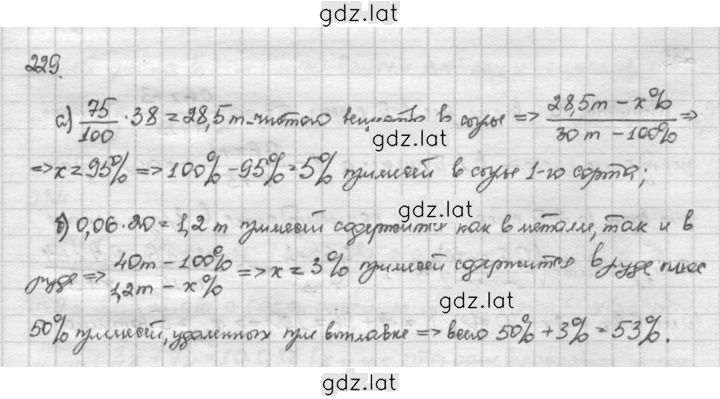 gdz.lat
229.
а) 75/100 · 38 = 28,5 т чистого вещества в сырье => 28,5 т – x% / 30 т – 100% =>
gdz.lat
=> x = 95% => 100% – 95% = 5% примесей в сырье 1-го сорта;
gdz.lat
б) 0,06 · 20 = 1,2 т примесей содержится как в металле, так и в
руде => 40 т – 100% / 1,2 т – x% => x = 3% примесей содержится в руде плюс
gdz.lat
50% примесей, удаленных при выплавке => всего 50% + 3% = 53%.
gdz.lat